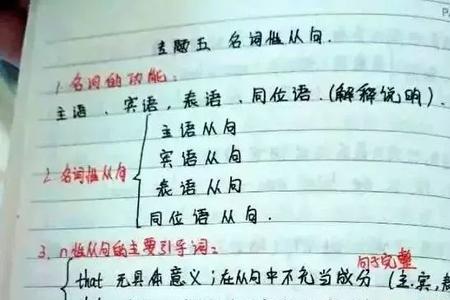 专题五 名词性从句.
1. 名词的功能:
主语、宾语、表语、同位语.(解释说明).
主语从句
宾语从句
2. 名词性从句
表语从句
同位语从句.
3. n性从句的主要引导词:
句子完整
that 无具体意义;在从句中不充当成分 (主.宾,表